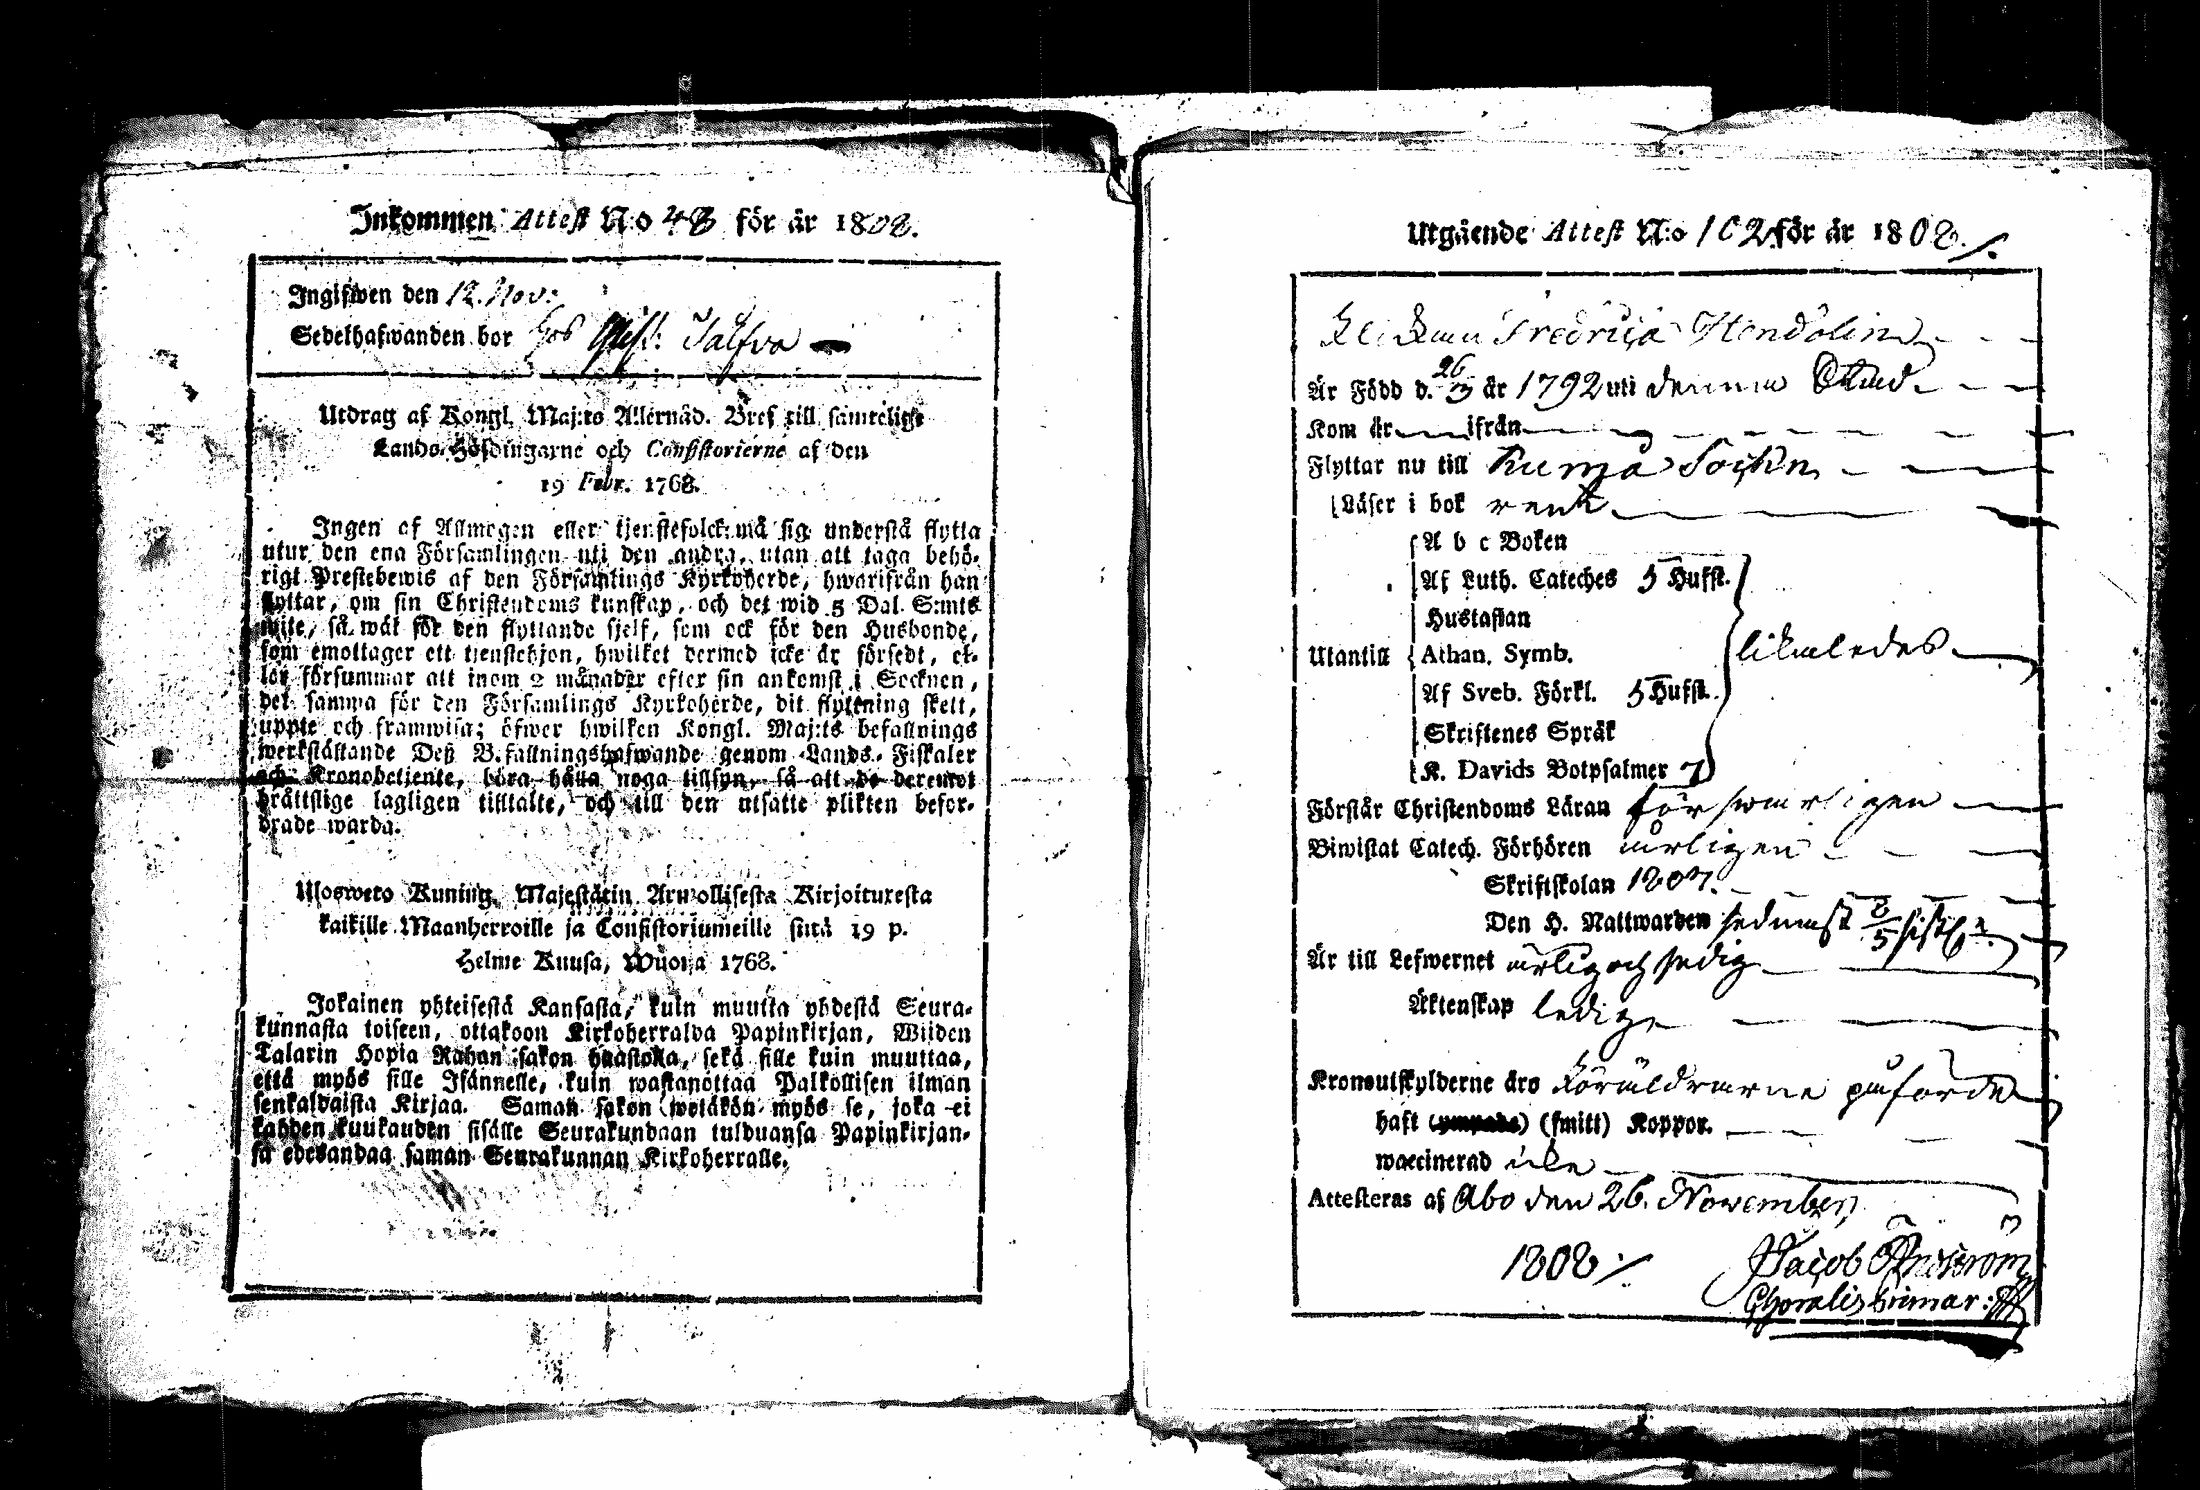 Inkommen Attest N:o 48 för år 1808.
Ingifwen den 12. Nov:
Sedelhafwanden bor hos
Utdrag af Kongl. Maj:ts Allernåd. Bref till samtelige
Lands-Höfdingarne och Consistorierne af den
19 Febr. 1768.
Ingen af Allmogen eller tjenstefolck må sig understå flytta
utur den ena Församlingen uti den andra, utan att taga behö-
rigt Prestebewis af den Församlings Kyrkoherde, hwarifrån han
flyttar, om sin Christendoms kunskap, och det wid 5 Dal. S:mts
wite, så wäl för den flyttande sjelf, som ock för den Husbonde,
som emottager ett tjenstehjon, hwilket dermed icke är försedt, el-
ler försummar att inom 2 månader efter sin ankomst i Socknen,
det samma för den Församlings Kyrkoherde, dit flyttning skett,
uppte och framwisa; öfwer hwilken Kongl. Maj:ts befallnings
werkställande Deß B.fallningshafwande genom Lands-Fiskaler
och Kronobetjente, böra hålla noga tillsyn, så att de deremot
bråttslige lagligen tilltalte, och till den utsatte plikten befor-
drade warda.
Ulosweto Kuning. Majestätin Armollisesta Kirjoituxesta
kaikille Maanherroille ja Consistoriumeille siitä 19 p.
Helme Kuusa, Wuona 1768.
Jokainen yhteisestä Kansasta, kuin muutta yhdestä Seura-
kunnasta toiseen, ottakoon Kirkoherralda Papinkirjan, Wiiden
Talarin Hopia Rahan sakon haastolla, sekä sille kuin muuttaa,
että myös sille Isännelle, kuin wastanottaa Palkollisen ilman
senkaldaista Kirjaa. Saman sakon wetäkön myös se, joka ei
kahden kuukauden sisälle Seurakundaan tulduansa Papinkirjan-
sa edesandaa saman Seurakunnan Kirkoherralle.
Utgående Attest N:o 102 för år 1808./.
Fredrica Hendolin
Är Född d. 26/3 år 1792 uti denna Stad
Kom år ifrån
Flyttar nu till Kumo Sockn
Läser i bok rent
A b c Boken
Af Luth. Cateches 5 Hufst.
Hustaflan
Utantill Athan. Symb. likaledes
Af Sveb. Förkl. 5 Hufst.
Skriftenes Språk
K. Davids Botpsalmer 7
Förstår Christendoms Läran förswarligen
Biwistat Catech. Förhören årligen
Skriftskolan 1807.
Den H. Nattwarden sednast 8/5 sistl.
Är till Lefwernet ärlig och sedig
Äktenskap ledig
Kronoutskylderne äro Föräldrarne påförde
haft (ympade) (smitt) Koppor.
waccinerad icke
Attesteras af Åbo den 26. November
1808 ./.
Jacob